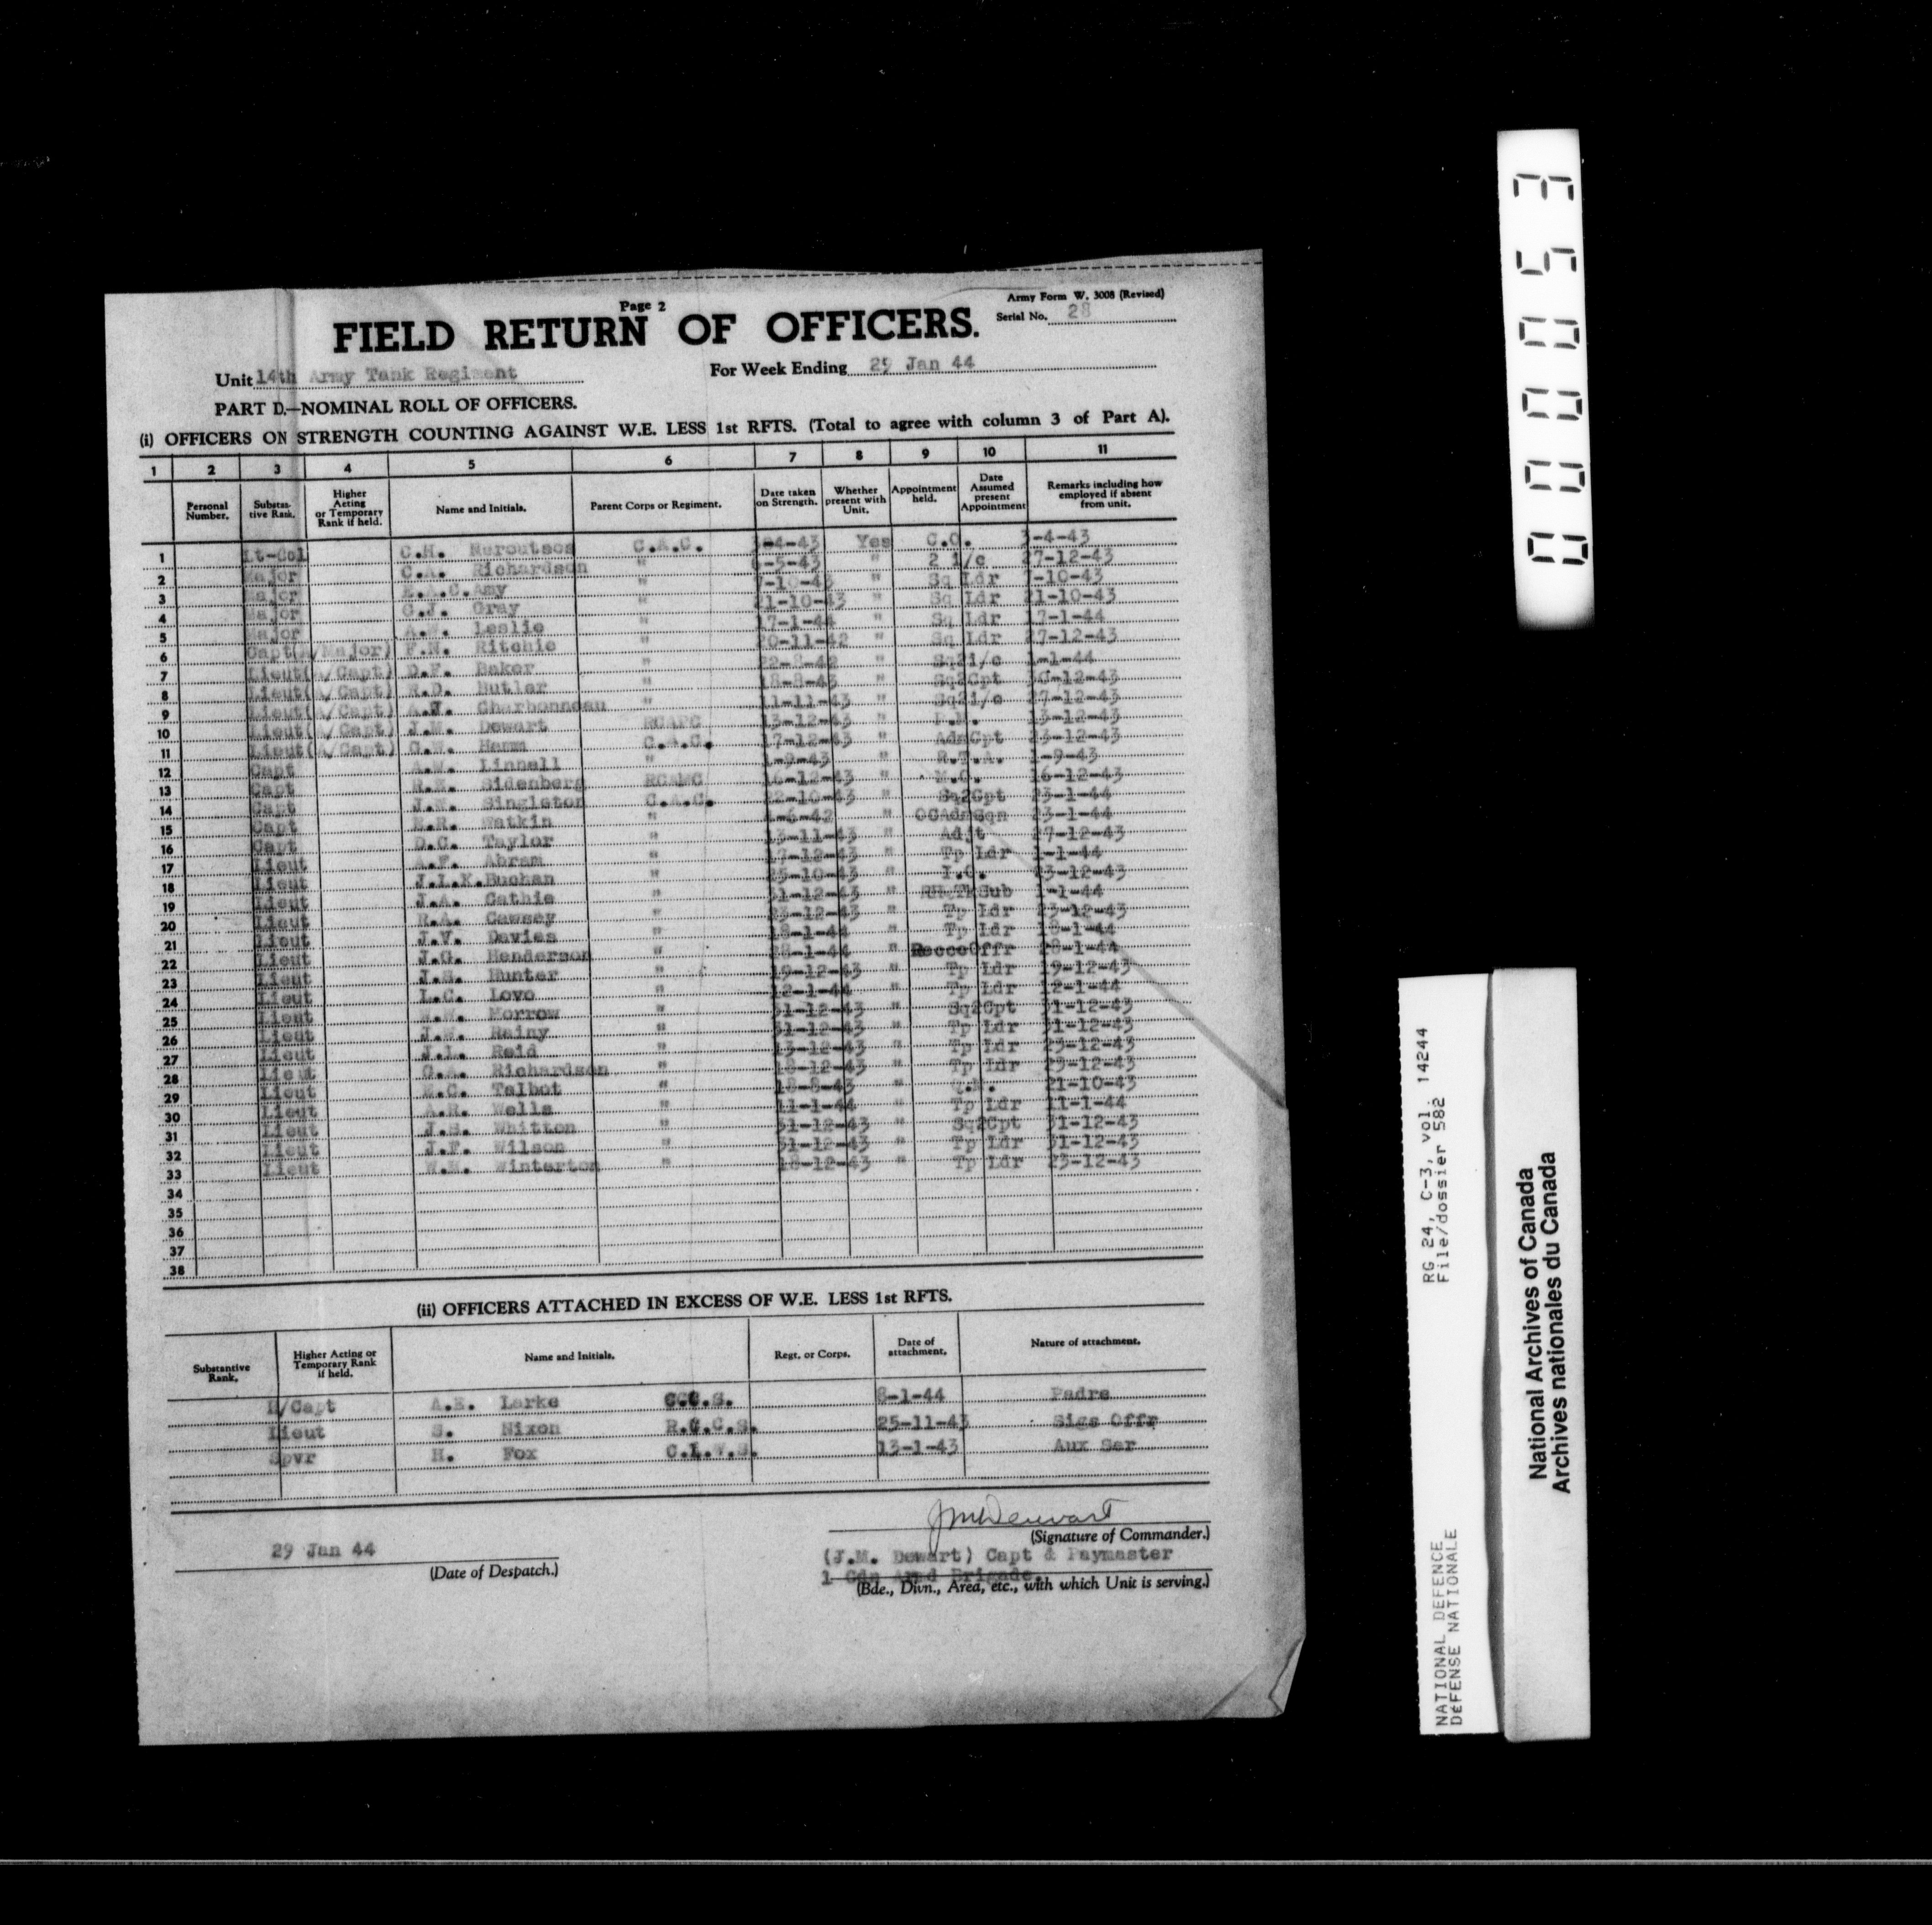 Page 2
Army Form W. 3008 (Revised)
FIELD RETURN OF OFFICERS.
Serial No. 28
Unit 14th Army Tank Regiment
For Week Ending 29 Jan 44
PART D.—NOMINAL ROLL OF OFFICERS.
(i) OFFICERS ON STRENGTH COUNTING AGAINST W.E. LESS 1st RFTS. (Total to agree with column 3 of Part A).
1 2 3 4 5 6 7 8 9 10 11
Personal Number. Substantive Rank. Higher Acting or Temporary Rank if held. Name and Initials. Parent Corps or Regiment. Date taken on Strength. Whether present with Unit. Appointment held. Date Assumed present Appointment Remarks including how employed if absent from unit.
1 Lt-Col C.H. C.A.C. 3-4-43 Yes C.O. 3-4-43
2 Major C.A. Richardson " 6-5-43 " 2 i/c 27-12-43
3 Major E.A.C. Amy " 7-10-43 " Sq Ldr 7-10-43
4 Major C.J. Gray " 21-10-43 " Sq Ldr 21-10-43
5 Major A.W. Leslie " 17-1-44 " Sq Ldr 17-1-44
6 Capt(A/Major) F.N. Ritchie " 20-11-42 " Sq Ldr 27-12-43
7 Lieut(A/Capt) D.F. Baker " 22-8-42 " Sq2i/c 1-1-44
8 Lieut(A/Capt) R.D. Butler " 18-8-43 " Sq2Cpt 30-12-43
9 Lieut(A/Capt) A.J. Charbonneau " 11-11-43 " Sq2i/c 27-12-43
10 Lieut(A/Capt) J.M. Dewart RCAPC 13-12-43 " P.M. 13-12-43
11 Lieut(A/Capt) G.W. Hamm C.A.C. 17-12-43 " AdmCpt 23-12-43
12 Capt A.W. Linnell " 1-9-43 " R.T.A. 1-9-43
13 Capt Sidenberg RCAMC 16-12-43 " M.O. 16-12-43
14 Capt J.W. Singleton C.A.C. 22-10-43 " Sq2Cpt 23-1-44
15 Capt E.R. Watkin " " OCAdmSqn 23-1-44
16 Capt D.C. Taylor " 23-11-43 " Adjt 27-12-43
17 Lieut A.F. Abram " 17-12-43 " Tp Ldr 1-1-44
18 Lieut J.L.K. Buchan " 25-10-43 " I.O. 23-12-43
19 Lieut J.A. Cathie " 31-12-43 " Sub 1-1-44
20 Lieut R.A. Cawsey " 23-12-43 " Tp Ldr 23-12-43
21 Lieut J.V. Davies " 18-1-44 " Tp Ldr 18-1-44
22 Lieut J.G. Henderson " 28-1-44 " RecceOffr 28-1-44
23 Lieut J.S. Hunter " 19-12-43 " Tp Ldr 19-12-43
24 Lieut L.C. Love " 12-1-44 " Tp Ldr 12-1-44
25 Lieut W.W. Morrow " 31-12-43 " Sq2Cpt 31-12-43
26 Lieut J.W. Rainy " 31-12-43 " Tp Ldr 31-12-43
27 Lieut J.L. Reid " 13-12-43 " Tp Ldr 23-12-43
28 Lieut G.A. Richardson " 18-12-43 " Tp Ldr 29-12-43
29 Lieut Talbot " 18-8-43 " 21-10-43
30 Lieut A.R. Wells " 11-1-44 " Tp Ldr 11-1-44
31 Lieut J.S. Whitton " 31-12-43 " Sq2Cpt 31-12-43
32 Lieut J.F. Wilson " 31-12-43 " Tp Ldr 31-12-43
33 Lieut W.M. Winterton " 18-12-43 " Tp Ldr 23-12-43
34
35
36
37
38
(ii) OFFICERS ATTACHED IN EXCESS OF W.E. LESS 1st RFTS.
Substantive Rank. Higher Acting or Temporary Rank if held. Name and Initials. Regt. or Corps. Date of attachment. Nature of attachment.
H/Capt A.E. Larke C.C.S. 8-1-44 Padre
Lieut S. Nixon R.C.C.S. 25-11-43 Sigs Offr
Spvr H. Fox C.L.W.S. 13-1-43 Aux Ser
JMDewart
(Signature of Commander.)
29 Jan 44
(Date of Despatch.)
(J.M. Dewart) Capt & Paymaster
1 Cdn Armd Brigade.
(Bde., Divn., Area, etc., with which Unit is serving.)
000053
RG 24, C-3, vol. 14244
File/dossier 582
NATIONAL DEFENCE
DÉFENSE NATIONALE
National Archives of Canada
Archives nationales du Canada